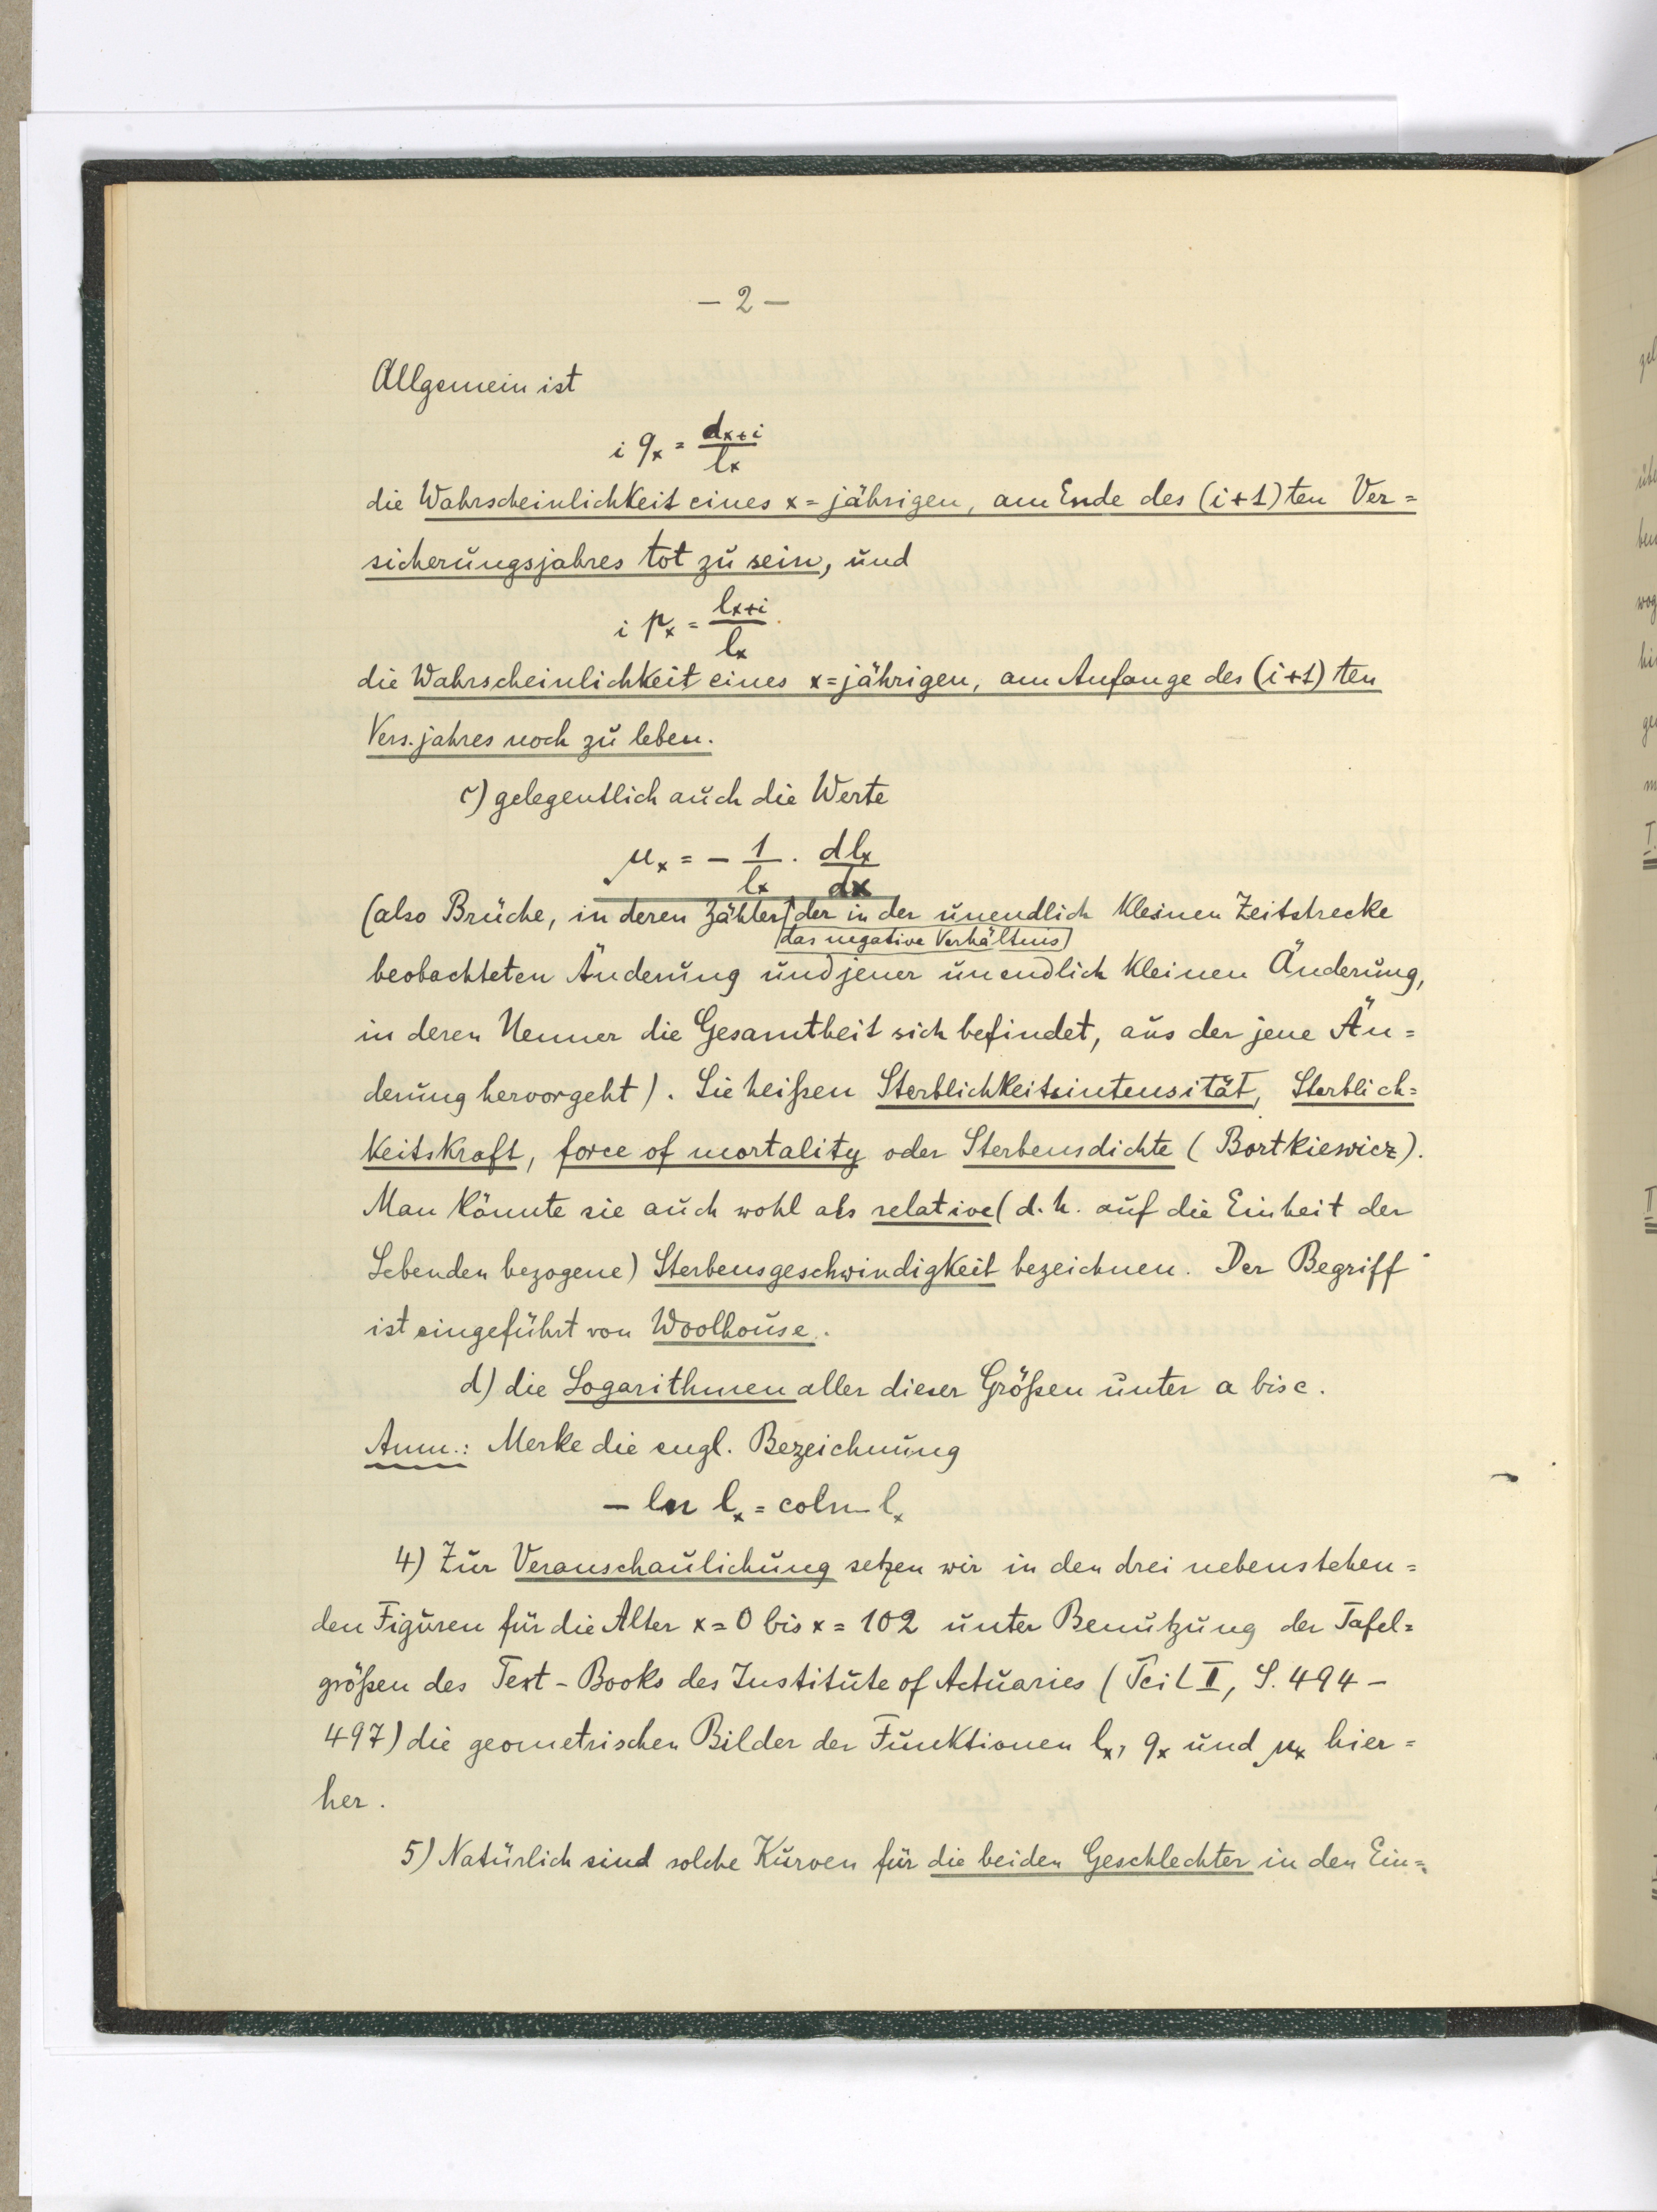 – 2 –
Allgemein ist
i qx = dx+i / lx
die Wahrscheinlichkeit eines x=jährigen, am Ende des (i+1)ten Ver=
sicherungsjahres tot zu sein, und
i px = lx+i / lx
die Wahrscheinlichkeit eines x=jährigen, am Anfange des (i+1)ten
Vers.jahres noch zu leben.
c) gelegentlich auch die Werte
μx = – 1/lx · dlx/dx
(also Brüche, in deren Zähler der in der unendlich kleinen Zeitstrecke
das negative Verhältnis
beobachteten Änderung und jener unendlich kleinen Änderung,
in deren Nenner die Gesamtheit sich befindet, aus der jene Än=
derung hervorgeht). Sie heißen Sterblichkeitsintensität, Sterblich=
keitskraft, force of mortality oder Sterbensdichte (Bortkiewicz).
Man könnte sie auch wohl als relative (d.h. auf die Einheit der
Lebenden bezogene) Sterbensgeschwindigkeit bezeichnen. Der Begriff
ist eingeführt von Woolhouse.
d) die Logarithmen aller dieser Größen unter a bis c.
Anm.: Merke die engl. Bezeichnung
– ln lx = coln lx
4) Zur Veranschaulichung setzen wir in den drei nebenstehen=
den Figuren für die Alter x = 0 bis x = 102 unter Benutzung der Tafel=
größen des Text-Books des Institute of Actuaries (Teil II, S. 494 –
497) die geometrischen Bilder der Funktionen lx, qx und μx hier=
her.
5) Natürlich sind solche Kurven für die beiden Geschlechter in den Ein=